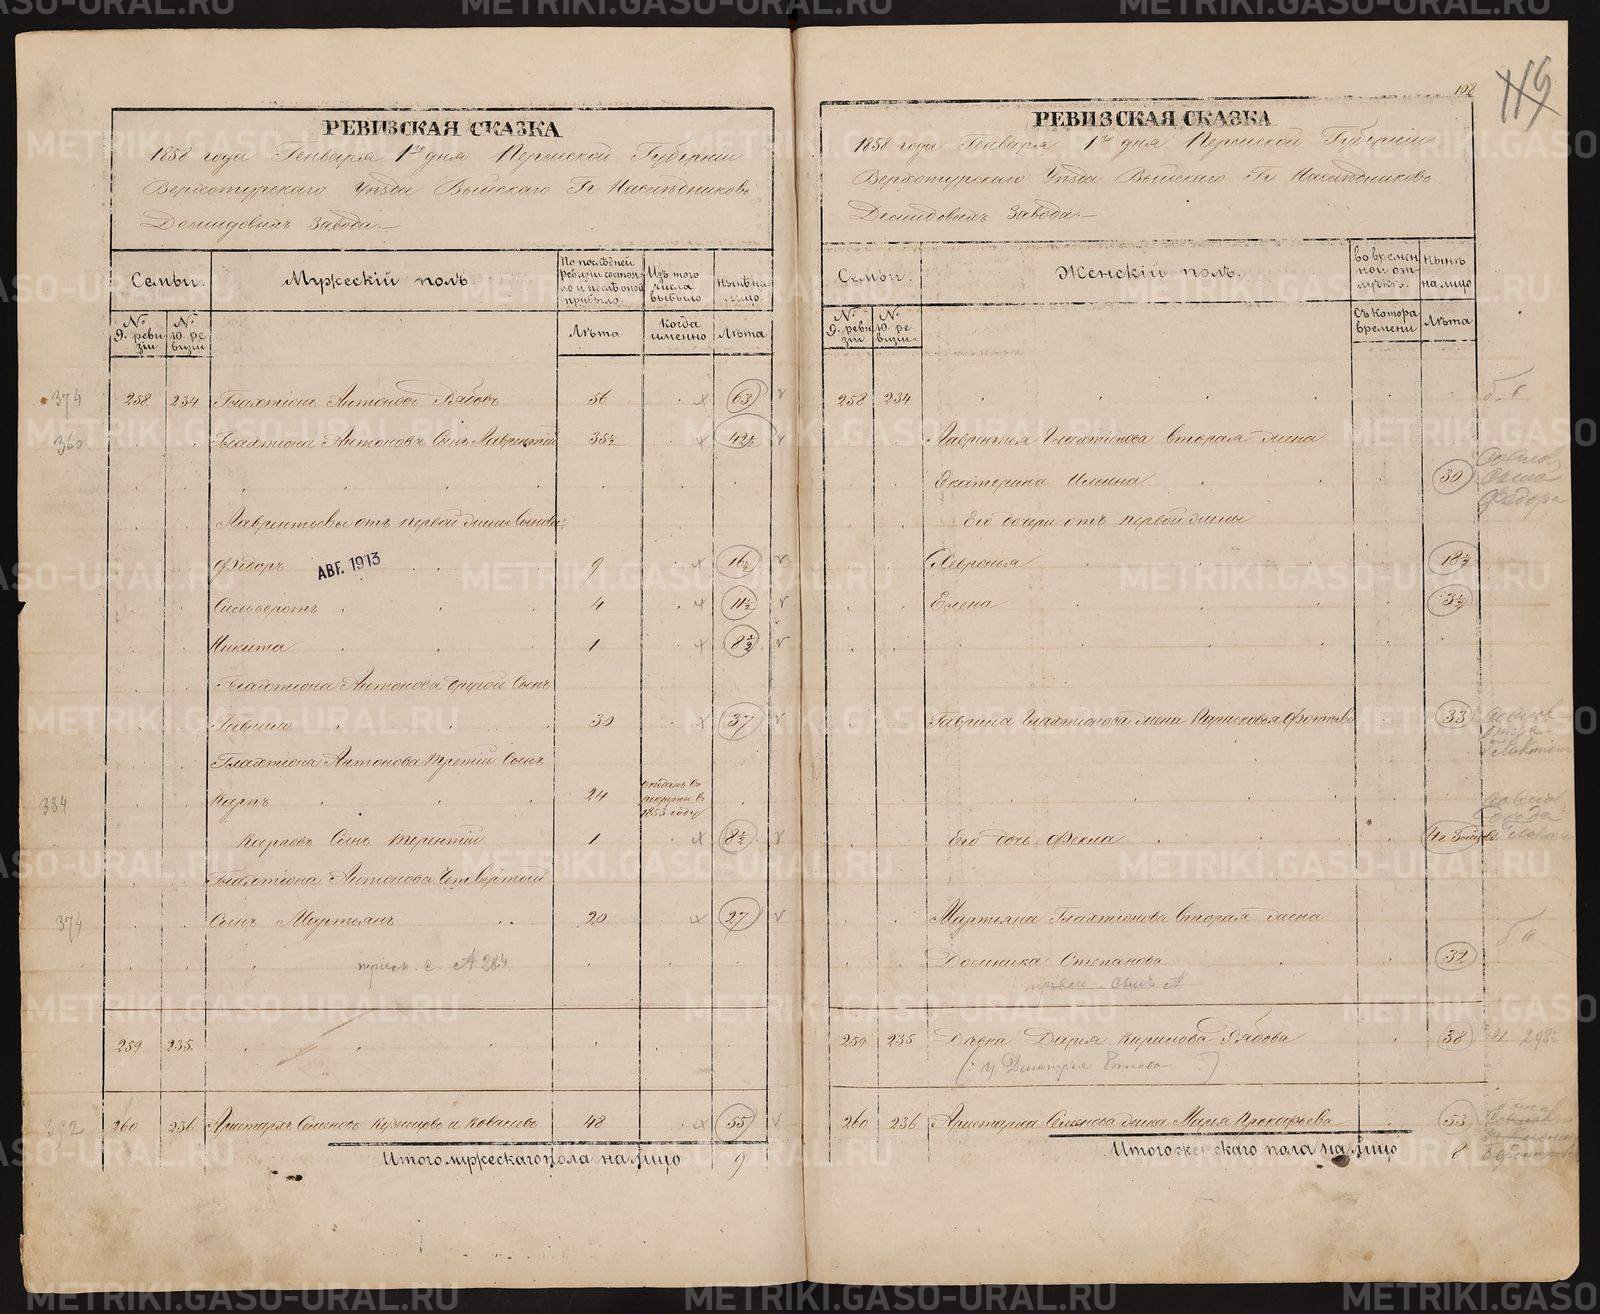 РЕВИЗСКАЯ СКАЗКА
1858 года Генваря 1го дня Пермской Губерніи
Верхотурскаго Уѣзда Выйскаго Гг. Наслѣдниковъ
Демидовыхъ Завода.
Семьи.
Мужескій полъ.
По послѣдней ревизіи состояло и послѣ оной прибыло
Изъ того числа выбыло
Нынѣ на лицо
№ 9. ревизіи
№ 10. ревизіи
Лѣта
Когда именно
Лѣта
374 258 234 Галахтіонъ Антоновъ Рябовъ 56 63
360 Галахтіона Антонова Сынъ Лаврентій 35½ 42½
Лаврентьевы отъ первой жены Сыновья:
Ѳедоръ АВГ. 1913 9 16½
Сильверстъ 4 11½
Никита 1 8½
Галахтіона Антонова другой Сынъ
Гаврило 30 37
Галахтіона Антонова третій Сынъ
384 Карпъ 24 отданъ въ рекруты въ 1853 году
Карповъ Сынъ Терентій 1 8½
Галахтіона Антонова Четвертый
374 Сынъ Мартьянъ 20 27
259 235.
260 236 Аристархъ Семеновъ Кузнецовъ и Ковалевъ 48 55
Итого мужескаго пола на лицо 9
198
119
РЕВИЗСКАЯ СКАЗКА
1858 года Генваря 1го дня Пермской Губерніи
Верхотурскаго Уѣзда Выйскаго Гг. Наслѣдниковъ
Демидовыхъ Завода.
Семьи.
Женскій полъ.
Во временной отлучкѣ.
Нынѣ на лицо
№ 9. ревизіи
№ 10. ревизіи
Съ котора времени
Лѣта
258 234
Лаврентія Галахтіонова вторая жена
Екатерина Ильина 30
Его дочери отъ первой жены
Февронья 18½
Елена 3½
Гаврила Галахтіонова жена Парасковья 33
Его дочь Фекла
Мартьяна Галахтіонова вторая жена
Домника Степанова 32
259 235 Дѣвка Дарья Рябова 38
260 236 Аристарха Семенова жена Марія Прокофьева 53
Итого женскаго пола на лицо 8
METRIKI.GASO-URAL.RU